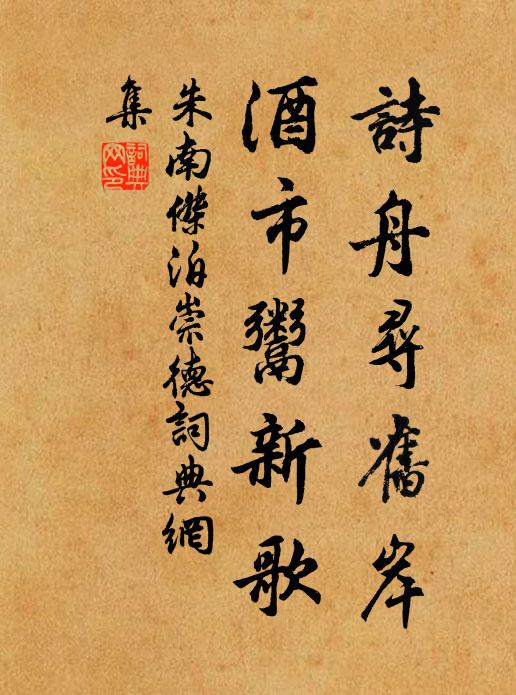 詩舟尋舊岸
酒市鬻新歌
朱南傑泊崇德詞典網
集
詞典網印